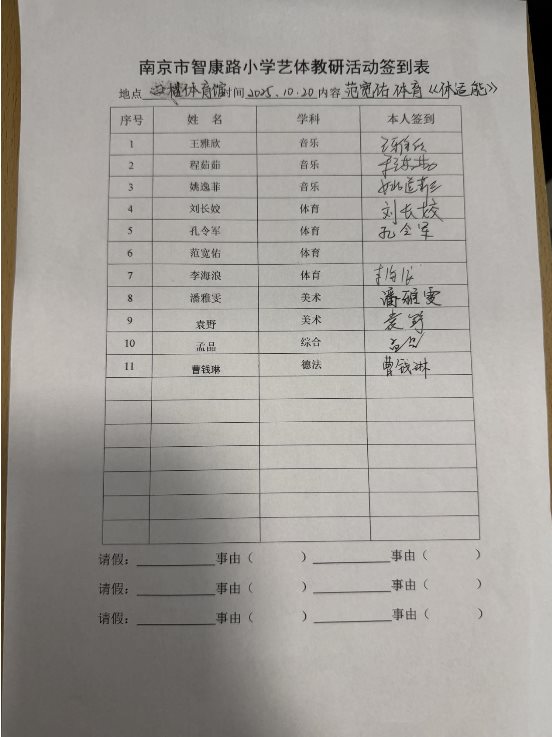 南京市智康路小学艺体教研活动签到表
地点 体育馆 时间 2025.10.20 内容 范宽佑 体育《体运能》
序号 姓名 学科 本人签到
1 王雅欣 音乐 王雅欣
2 程茹茹 音乐 程茹茹
3 姚逸菲 音乐 姚逸菲
4 刘长姣 体育 刘长姣
5 孔令军 体育 孔令军
6 范宽佑 体育
7 李海浪 体育 李海浪
8 潘雅雯 美术 潘雅雯
9 袁野 美术 袁野
10 孟品 综合 孟品
11 曹钱琳 德法 曹钱琳
请假： 事由（ ） 事由（ ）
请假： 事由（ ） 事由（ ）
请假： 事由（ ） 事由（ ）